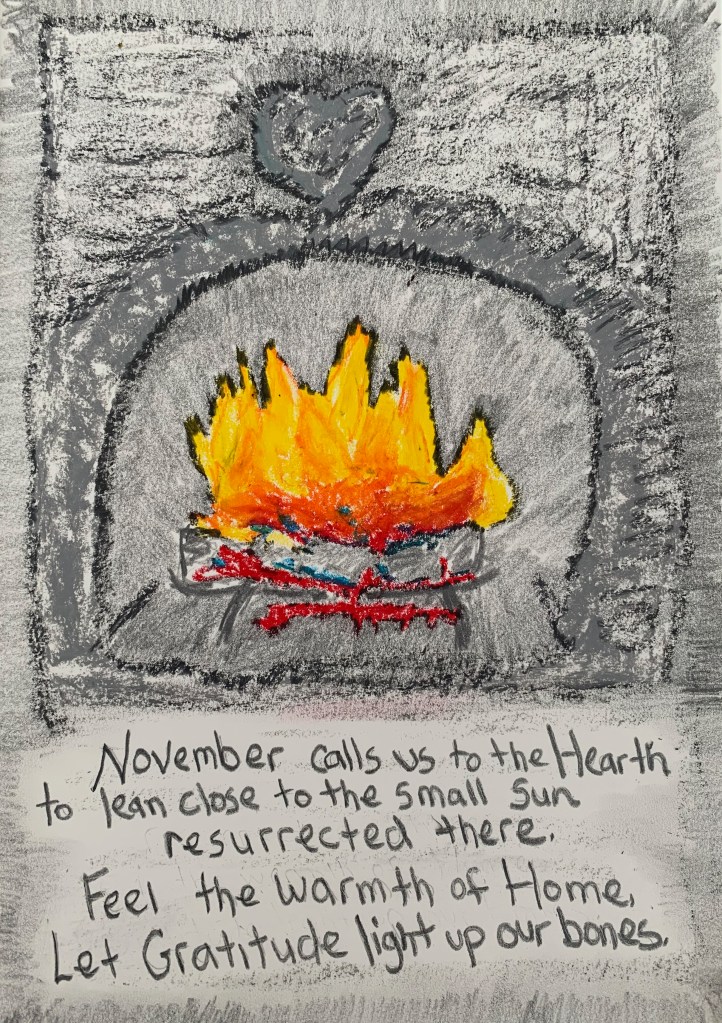 November calls us to the Hearth
to lean close to the small sun
resurrected there.
Feel the warmth of Home,
Let Gratitude light up our bones.